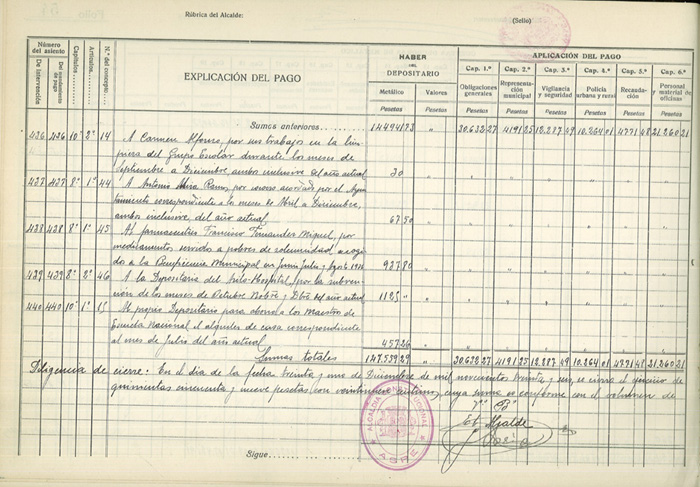 Rúbrica del Alcalde:
(Sello)
Número del asiento
De intervención
Del mandamiento de pago
Capítulos
Artículos
N.º del concepto
EXPLICACIÓN DEL PAGO
HABER DEL DEPOSITARIO
Metálico
Pesetas
Valores
Pesetas
APLICACIÓN DEL PAGO
Cap. 1.º
Obligaciones generales
Pesetas
Cap. 2.º
Representación municipal
Pesetas
Cap. 3.º
Vigilancia y seguridad
Pesetas
Cap. 4.º
Policía urbana y rural
Pesetas
Cap. 5.º
Recaudación
Pesetas
Cap. 6.º
Personal y material de oficinas
Pesetas
Sumas anteriores
30.632 27 4191 25 12.287 49 10.264 01 4771 48 21.260 21
436 436 10º 2º 14 A Carmen Alfonso, por sus trabajos en la lim-
pieza del Grupo Escolar durante los meses de
Septiembre a Diciembre, ambos inclusive del año actual 30
437 437 8º 1º 44 A Antonio Mira Ramos, por socorro acordado por el Ayun-
tamiento correspondiente a los meses de Abril a Diciembre,
ambos inclusive, del año actual 67 50
438 438 8º 1º 45 Al farmaceutico Francisco Fernandez Miguel, por
medicamentos servidos a pobres de solemnidad acogi-
dos a la Beneficencia Municipal en Junio Julio y Agosto 937 80
439 439 8º 2º 46 A la Depositaria del Hospital, por la subven-
ción de los meses de Octubre Nobre y Dbre del año actual 1125
440 440 10º 1º 15 Al propio Depositario para abono a los Maestros de
Escuela Nacional el alquiler de casa correspondiente
al mes de Julio del año actual 457 26
Sumas totales 147.539 29 30.632 27 4191 25 12.287 49 10.264 01 4771 48 21.260 21
Diligencia de cierre: En el dia de la fecha treinta y uno de Diciembre de mil novecientos treinta y seis, se cierra el ejercicio de
quinientas cincuenta y nueve pesetas con veintinueve céntimos, cuya suma es conforme con el volumen de
Vº Bº
El Alcalde
ALCALDIA CONSTITUCIONAL
Sigue